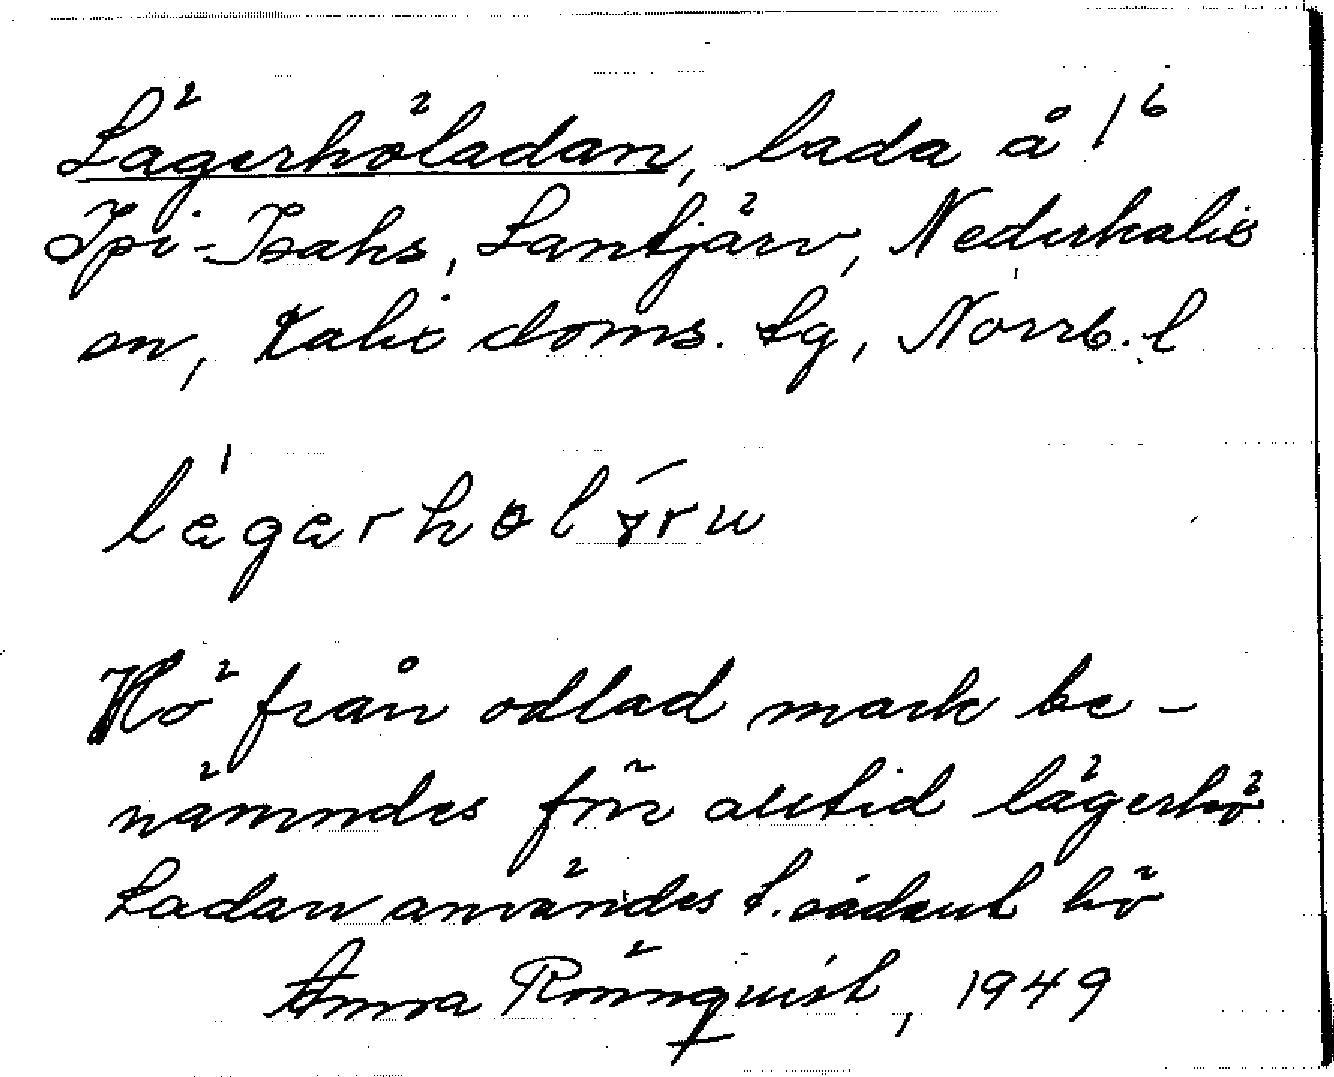 Lägerhöladan, lada å 1⁶
Ipi-Isaks, Lantjärv, Nederkalix
sn, Kalix doms. lg, Norrb. l
Hö från odlad mark be-
nämndes förr alltid lägerhö
Ladan användes t. sådant hö
Anna Rönnquist, 1949